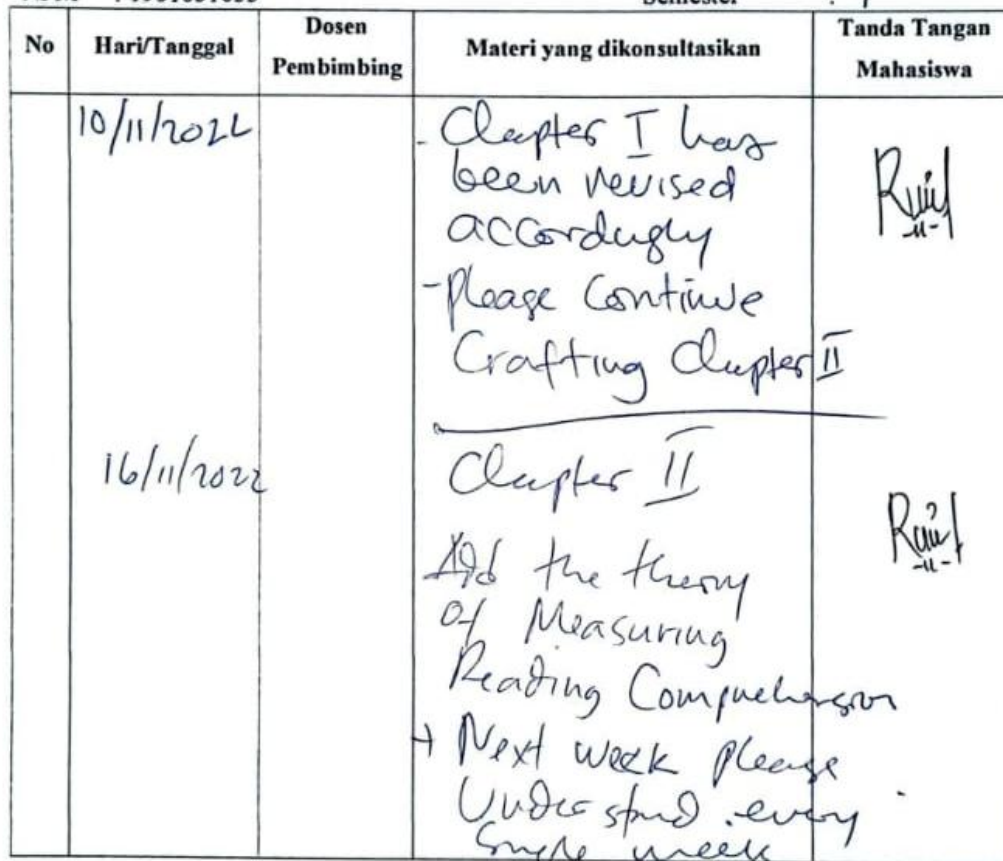 Semester
No
Hari/Tanggal
Dosen
Pembimbing
Materi yang dikonsultasikan
Tanda Tangan
Mahasiswa
10/11/2022
- Chapter I has
been revised
accordingly
- Please Continue
Crafting Chapter II
16/11/2022
Chapter II
Add the theory
of Measuring
Reading Comprehension
+ Next week please
Understand every
Single week